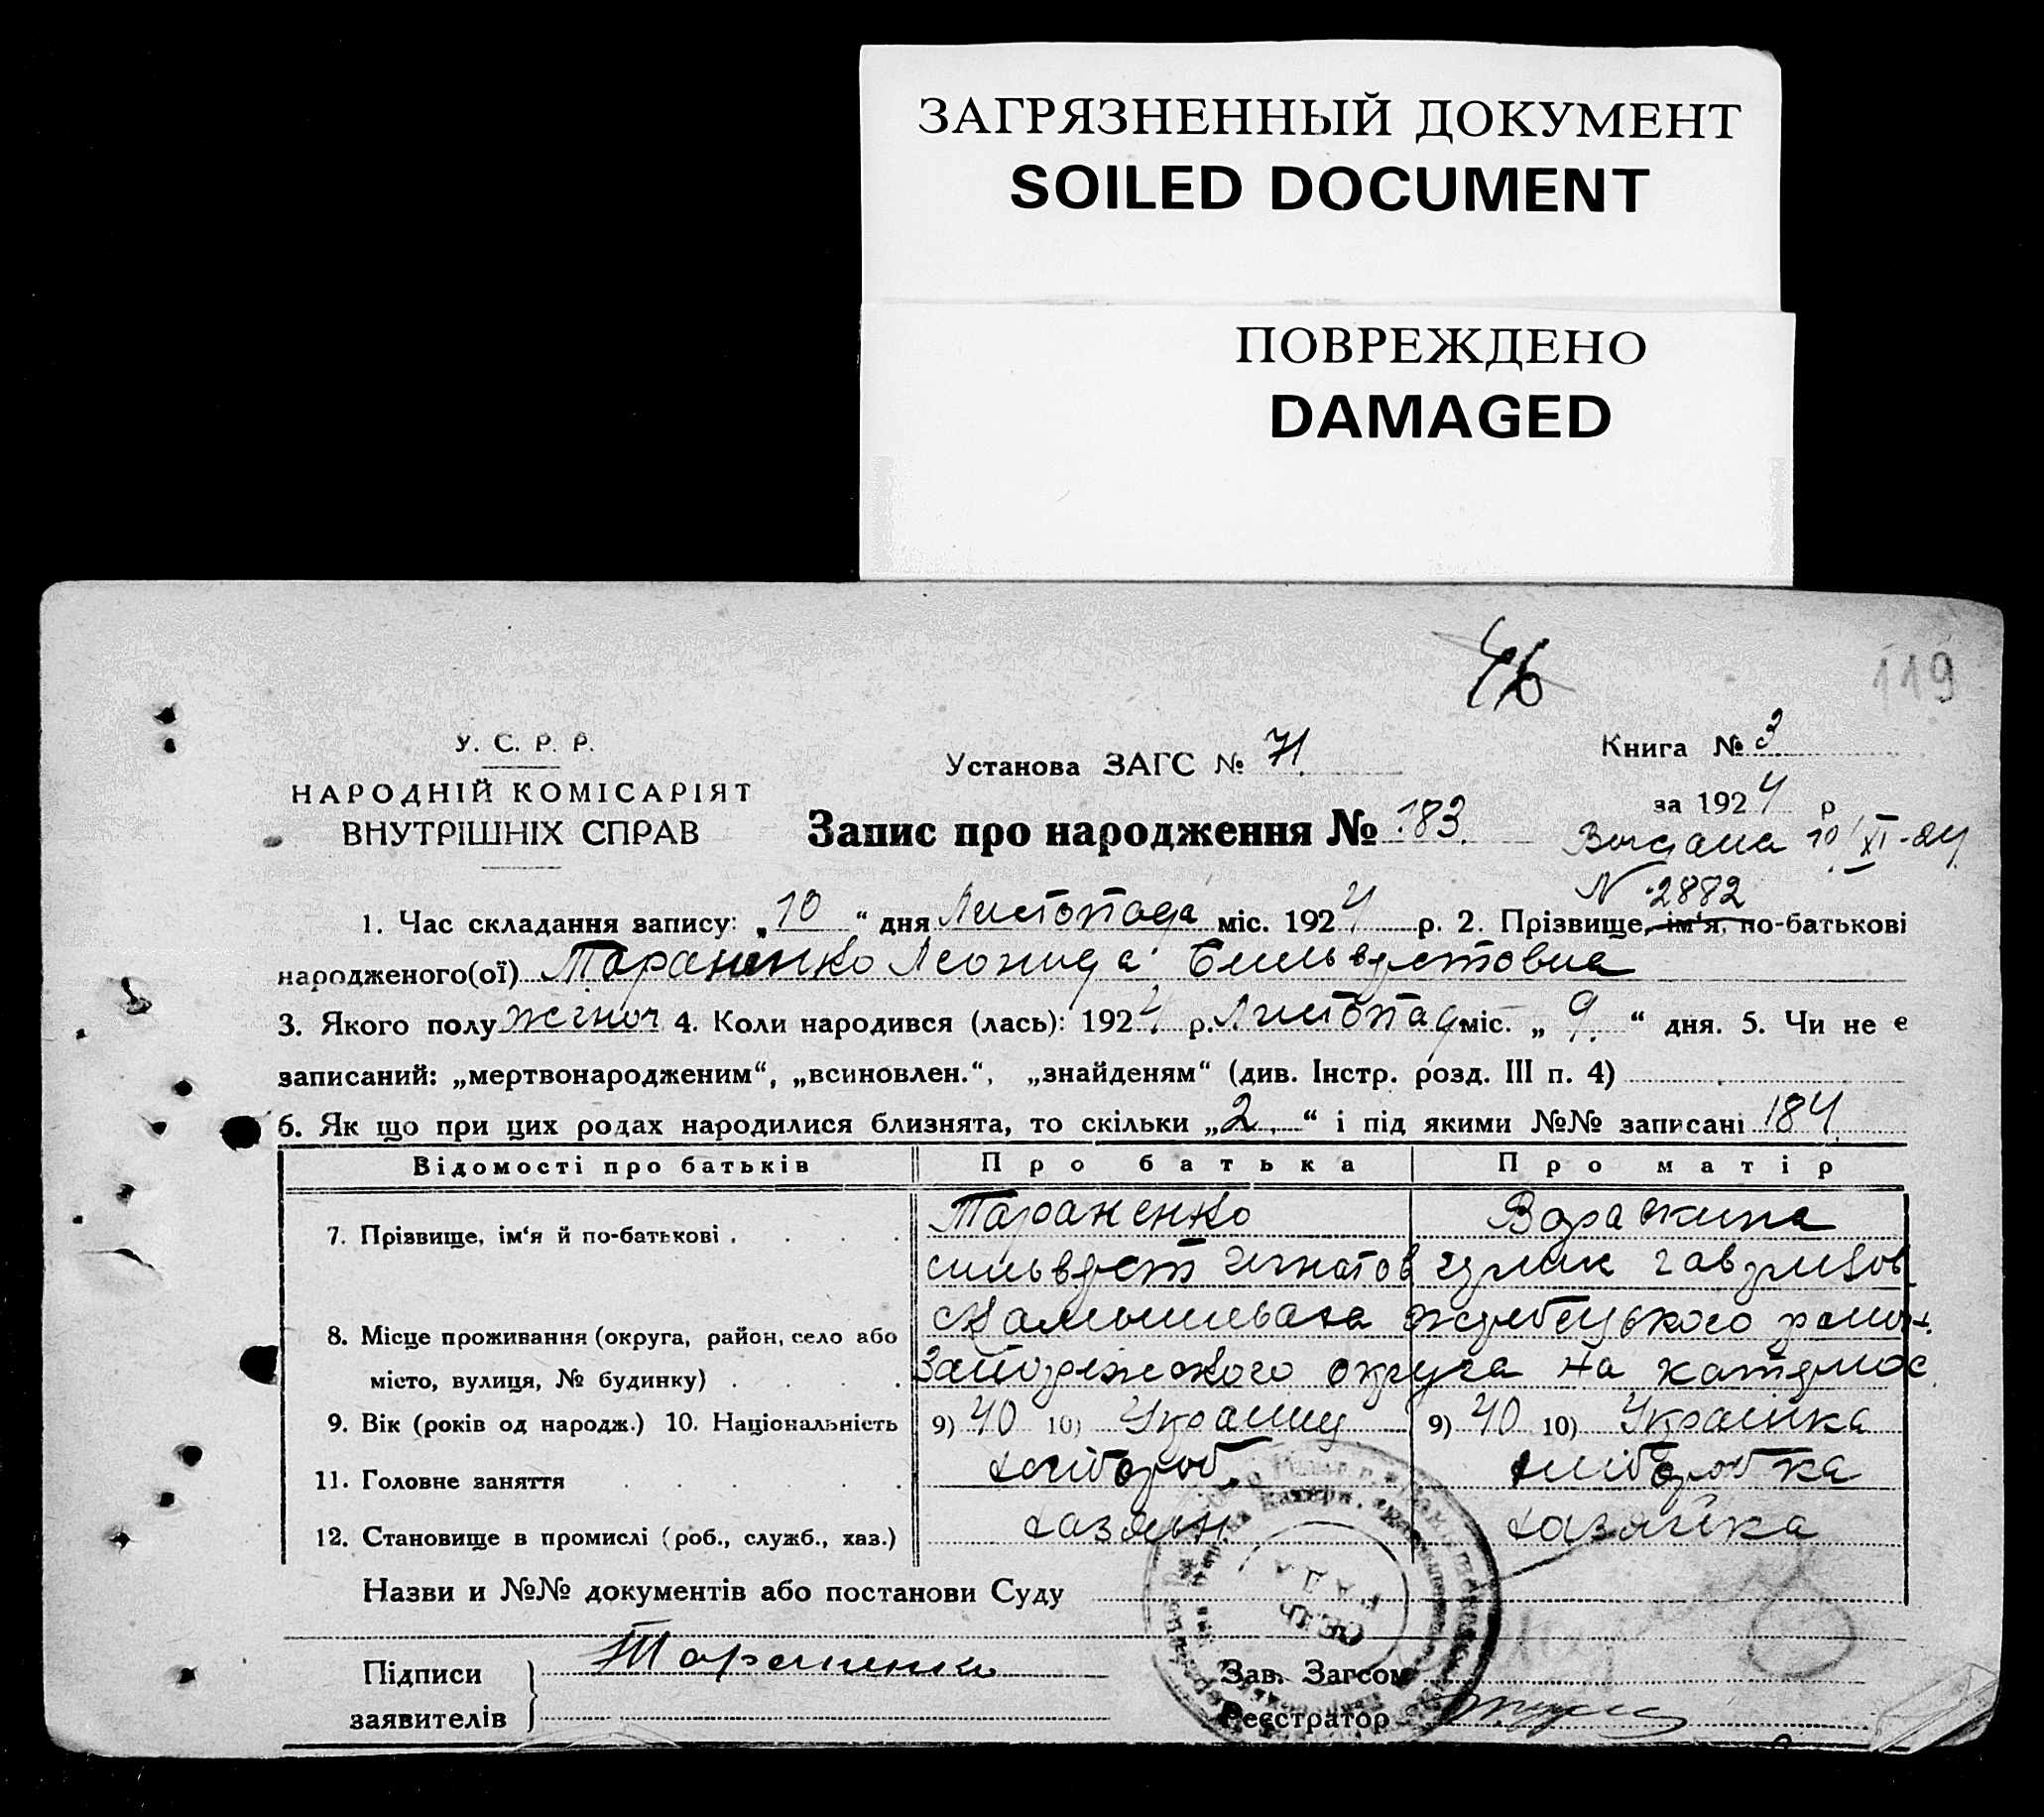 ЗАГРЯЗНЕННЫЙ ДОКУМЕНТ
SOILED DOCUMENT
ПОВРЕЖДЕНО
DAMAGED
46
119
У. С. Р. Р.
НАРОДНІЙ КОМІСАРІЯТ
ВНУТРІШНІХ СПРАВ
Установа ЗАГС № 71.
Книга № 3
за 1924 р
Запис про народження № 183.
10/XI-24
N 2882
1. Час складання запису: „10“ дня Листопада міс. 1924 р. 2. Прізвище, ім‘я, по-батькові
народженого(ої) Тараненко Леонида Сильвестовна
3. Якого полу жіноч 4. Коли народився (лась): 1924 р. Листопад міс. „9.“ дня. 5. Чи не є
записаний: „мертвонародженим“, „всиновлен.“, „знайденям“ (див. Інстр. розд. III п. 4)
6. Як що при цих родах народилися близнята, то скільки „2.“ і під якими №№ записані 184
Відомості про батьків Про батька Про матір
7. Прізвище, ім‘я й по-батькові . . . . Тараненко
сильвест игнатов гаврилов
8. Місце проживання (округа, район, село або
місто, вулиця, № будинку) . . . . округа на
9. Вік (років од народж.) 10. Національність 9) 40 10) Украинц 9) 40 10) Украинка
11. Головне заняття хлібороб. хліборобка
12. Становище в промислі (роб., служб., хаз.) хазяин. хазяйка
Назви и №№ документів або постанови Суду
Підписи Тараненко Зав. Загсом
заявителів Реєстратор